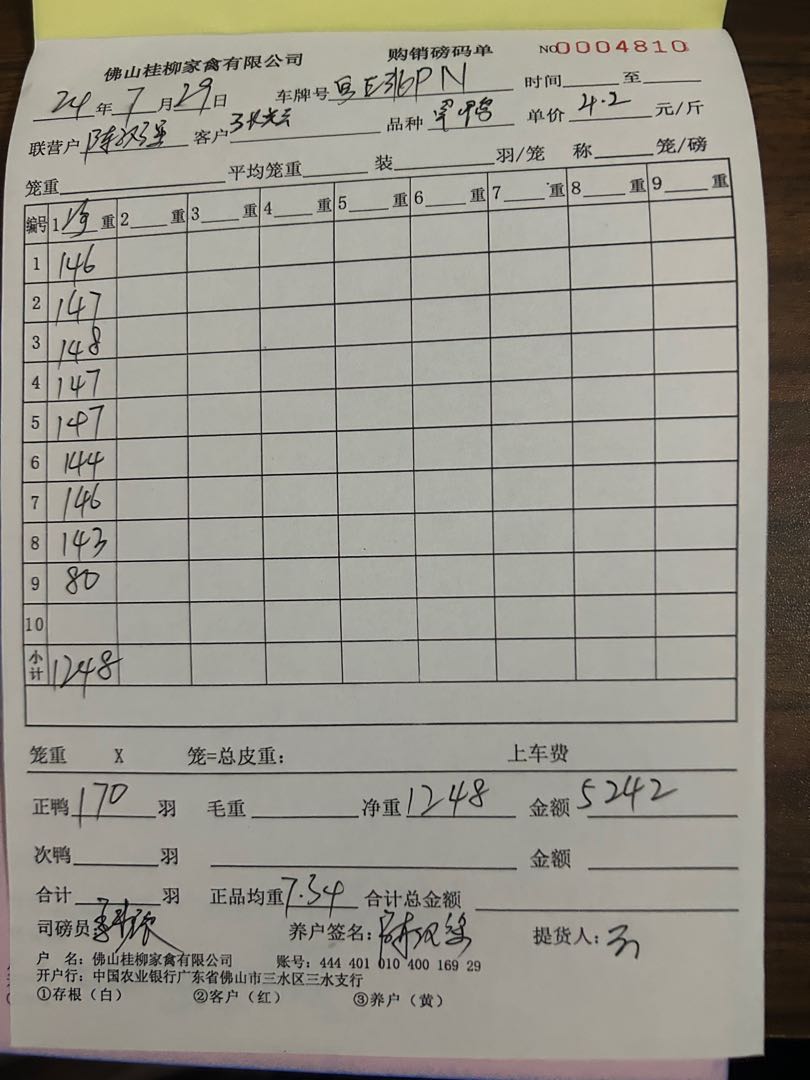 佛山桂柳家禽有限公司 购销磅码单 NO0004810
24年7月29日 车牌号粤E316PN 时间 至
联营户陈汉 客户 品种 鸭 单价4.2元/斤
笼重 平均笼重 装 羽/笼 称 笼/磅
编号 1净重 2 重 3 重 4 重 5 重 6 重 7 重 8 重 9 重
1 146
2 147
3 148
4 147
5 147
6 144
7 146
8 143
9 80
10
小计 1248
笼重 X 笼=总皮重: 上车费
正鸭170羽 毛重 净重1248 金额5242
次鸭 羽 金额
合计 羽 正品均重7.34 合计总金额
司磅员 养户签名:陈汉 提货人:
户 名:佛山桂柳家禽有限公司 账号:444 401 010 400 169 29
开户行:中国农业银行广东省佛山市三水区三水支行
①存根(白) ②客户(红) ③养户(黄)